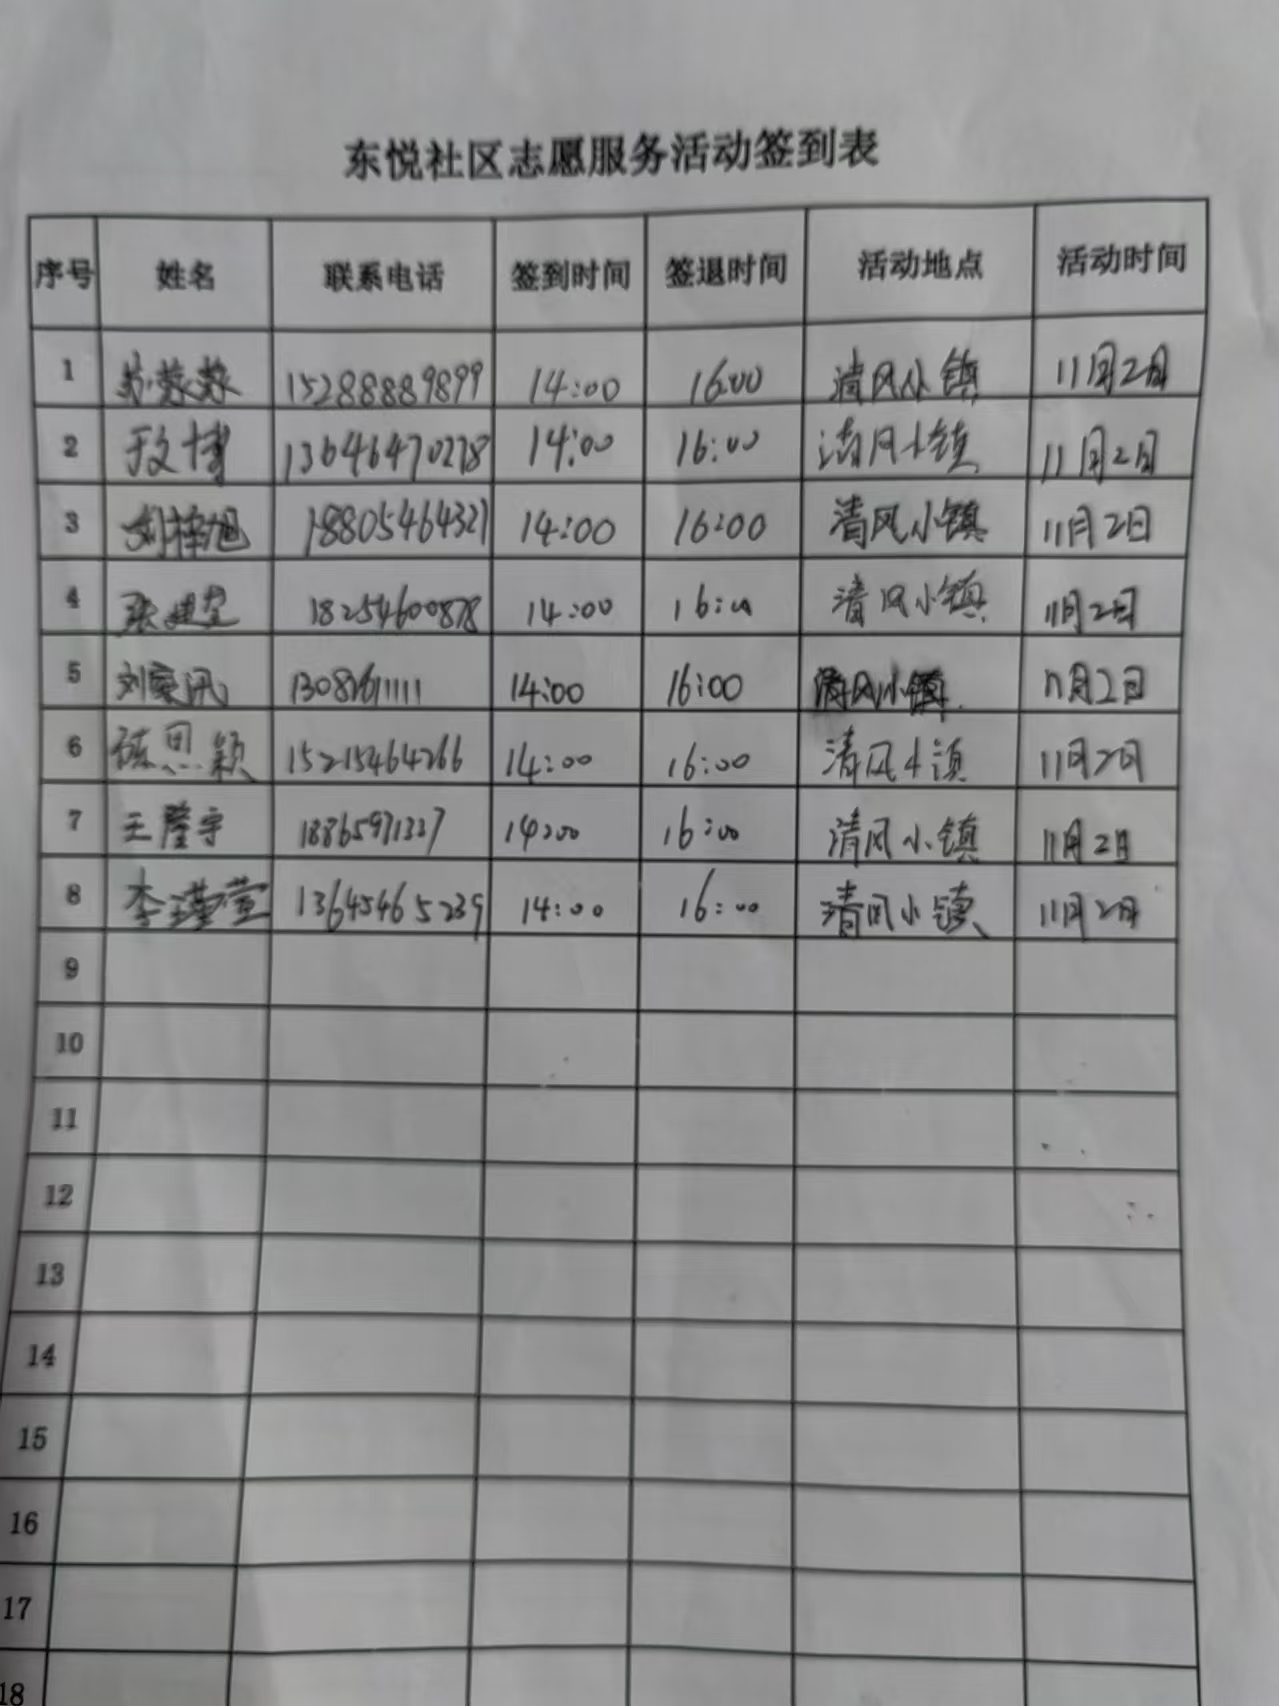 东悦社区志愿服务活动签到表
序号 姓名 联系电话 签到时间 签退时间 活动地点 活动时间
1 苏荻荻 15288889899 14:00 16:00 清风小镇 11月2日
2 于文博 13646470278 14:00 16:00 清风小镇 11月2日
3 刘梓旭 18805464321 14:00 16:00 清风小镇 11月2日
4 张建莹 18254600878 14:00 16:00 清风小镇 11月2日
5 刘奕汎 14:00 16:00 清风小镇 11月2日
6 陈思颖 15215464266 14:00 16:00 清风小镇 11月2日
7 王隆宇 14:00 16:00 清风小镇 11月2日
8 李瑾萱 13645465239 14:00 16:00 清风小镇 11月2日
9
10
11
12
13
14
15
16
17
18